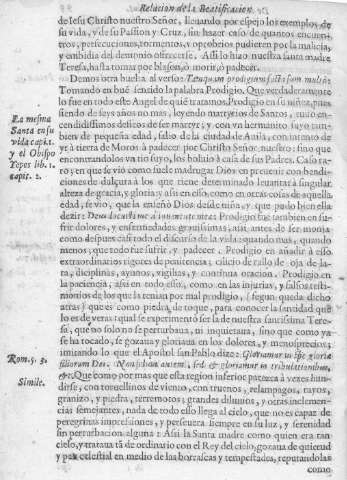 Relacion de la Beatificacion
de Iesu Christo nuestro Señor, lleuando por espejo los exemplos de
su vida, y de su Passion y Cruz, sin hazer caso de quantos encuen-
tros, persecuciones, tormentos, y oprobios pudieren por la malicia,
y embidia del demonio ofrecerse. Assi lo hizo nuestra santa madre
Teresa, hasta tomar por blason, ò morir, ò padecer.
Demos otra buelta al verso: Tanquam prodigium factus sum multis:
Tomando en buẽ sentido la palabra Prodigio. Que verdaderamente
lo fue en todo este Angel de quiẽ tratamos. Prodigio en su niñez, pues
siendo de seys años no mas, leyendo martyrios de Santos, tuuo en-
cendidissimos desseos de ser martyr; y con vn hermanito suyo tam-
bien de pequeña edad, salio de la ciudad de Auila, con intento de
yr à tierra de Moros à padecer por Christo Señor nuestro: sino que
encontrandolos vn tio suyo, los boluio à casa de sus Padres. Caso ra-
ro; en que se vio como suele madrugar Dios en preuenir con bendi-
ciones de dulçura à los que tiene determinado leuantar à singular
alteza de gracia, y gloria: y assi en esso, como en otras cosas de aquella
edad, se vio, que la enseñò Dios desde niña, y que pudo bien ella
dezir: Deus docuisti me à iuuentute mea. Prodigio fue tambien en su-
frir dolores, y enfermedades grauissimas, assi antes de ser monja
como despues casi todo el discurso de la vida: aquando mas, quando
menos; que todo fue sufrir, y padecer. Prodigio en añadir à esso
extraordinarios rigores de penitencia; cilicio de rallo de oja de la-
ta, diciplinas, ayunos, vigilias, y continua oracion. Prodigio en
la paciencia, assi en todo esso, como en las injurias, y falsos testi-
monios de los que la tenian por mal prodigio, (segun queda dicho
atras) que es como piedra de toque, para conocer la santidad que
lo es de veras: qual se experimentò ser la de nuestra santissima Tere-
sa, que no solo no se perturbaua, ni inquietaua, sino que como ya
se ha tocado, se gozaua y gloriaua en los dolores, y menosprecios;
imitando lo que el Apostol san Pablo dize: Gloriamur in spe gloriæ
filiorum Dei. Non solùm autem, sed & gloriamur in tribulationibus,
&c. Que como por mas que esta region inferior parezca à vezes hun-
dirse, con toruellinos de viento, con truenos, relampagos, rayos,
granizo, y piedra, terremotos, grandes diluuios, y otras inclemen-
cias semejantes, nada de todo esso llega al cielo, que no es capaz de
peregrinas impressiones, y perseuera siempre en su luz, y serenidad
sin perturbacion alguna: Assi la Santa madre como quien era tan
cielo, y trataua tã de ordinario con el Rey del cielo, gozaua de quietud
y paz celestial en medio de las borrascas y tempestades, reputandolas
como
La mesma
Santa en su
vida capit. 1.
y el Obispo
Yepes lib. 1.
capit. 2.
Rom. 5. 3.
Simile.